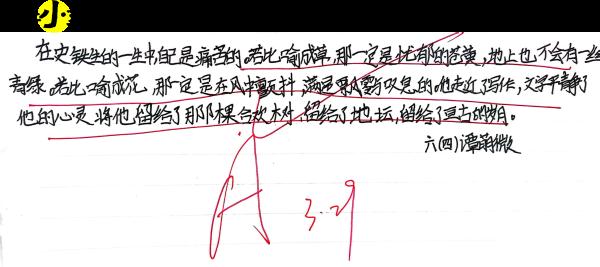 小
在史铁生的一生中自己是痛苦的。若比喻成草,那一定是忧郁的苍黄,地上也不会有一丝
青绿。若比喻成花,那一定是在风中颤抖,满是叹息的。他走近了写作,文字平静了
他的心灵,将他留给了那那棵合欢树,留给了地坛,留给了亘古的
六(四)谭雨微
A
3.29